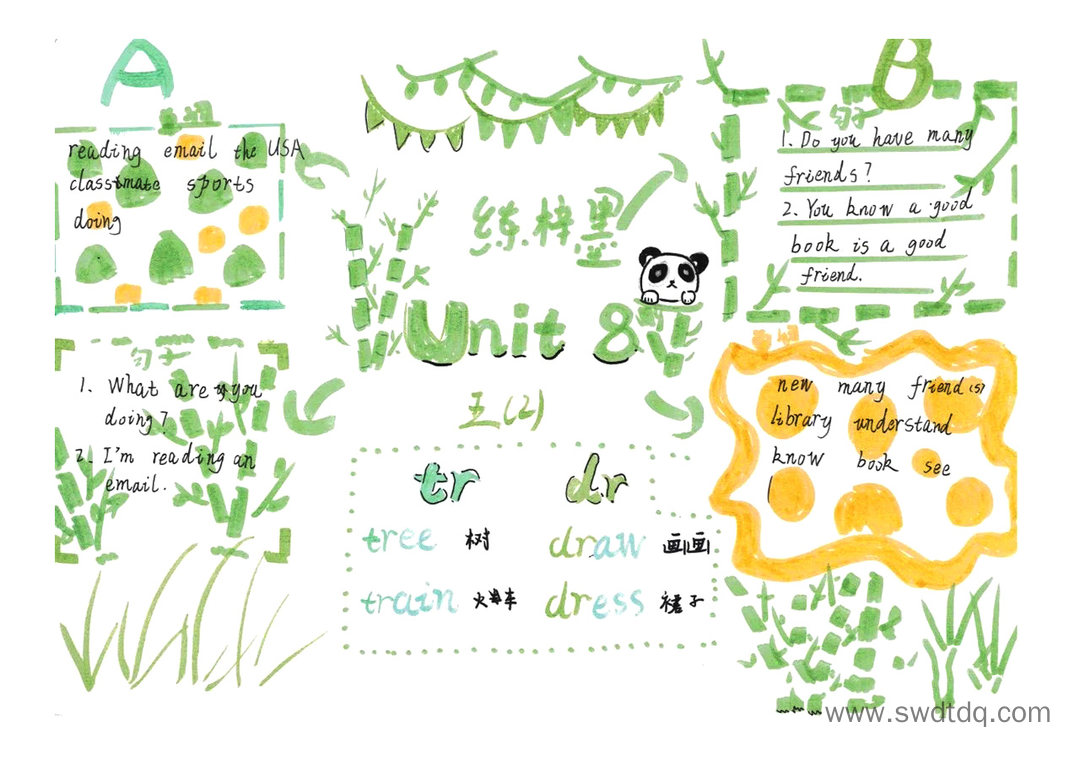 A
单词
reading email the USA
classmate sports
doing
句子
1. What are you
doing?
2. I'm reading an
email.
练梓墨
Unit 8
五(2)
tr dr
tree 树 draw 画画
train 火车 dress 裙子
B
句子
1. Do you have many
friends?
2. You know a good
book is a good
friend.
单词
new many friend(s)
library understand
know book see
www.swdtdq.com